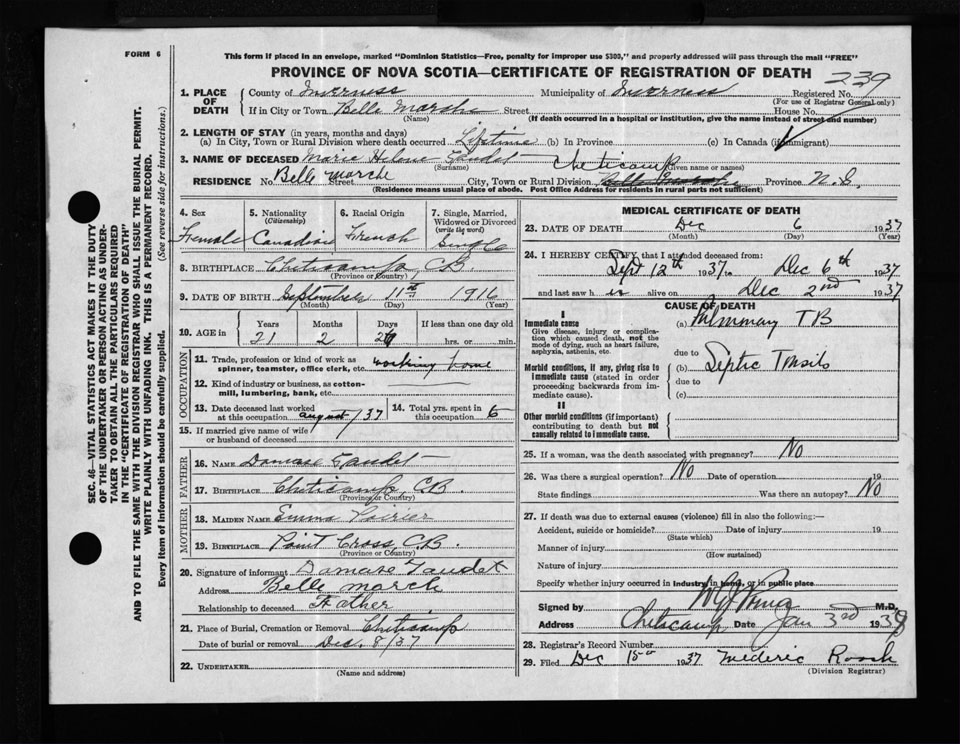 FORM 6
This form if placed in an envelope, marked "Dominion Statistics—Free, penalty for improper use $300," and properly addressed will pass through the mail "FREE"
PROVINCE OF NOVA SCOTIA—CERTIFICATE OF REGISTRATION OF DEATH
239
1. PLACE OF DEATH
County of Inverness Municipality of Inverness Registered No.
(For use of Registrar General only)
If in City or Town Belle Marshe Street House No.
(Name) (If death occurred in a hospital or institution, give the name instead of street and number)
2. LENGTH OF STAY (in years, months and days)
(a) In City, Town or Rural Division where death occurred Lifetime (b) In Province (c) In Canada (if immigrant)
3. NAME OF DECEASED Marie Helene Gaudet
(Surname) (Given name or names)
Cheticamp
RESIDENCE No. Belle Marche Street City, Town or Rural Division Belle Marche Province N.S.
(Residence means usual place of abode. Post Office Address for residents in rural parts not sufficient)
4. Sex Female
5. Nationality (Citizenship) Canadian
6. Racial Origin French
7. Single, Married, Widowed or Divorced (write the word) Single
8. BIRTHPLACE Cheticamp, C.B.
(Province or Country)
9. DATE OF BIRTH September 11st 1916
(Month) (Day) (Year)
10. AGE in Years 21 Months 2 Days If less than one day old hrs. or min.
OCCUPATION
11. Trade, profession or kind of work as spinner, teamster, office clerk, etc. working home
12. Kind of industry or business, as cotton-mill, lumbering, bank, etc.
13. Date deceased last worked at this occupation august/37
14. Total yrs. spent in this occupation 5
15. If married give name of wife or husband of deceased
FATHER
16. NAME Damase Gaudet
17. BIRTHPLACE Cheticamp, C.B
(Province or Country)
MOTHER
18. MAIDEN NAME Emma Poirier
19. BIRTHPLACE Point Cross, C.B.
(Province or Country)
20. Signature of informant Damase Gaudet
Address Belle march
Relationship to deceased Father
21. Place of Burial, Cremation or Removal Cheticamp
Date of burial or removal Dec. 8/37
22. UNDERTAKER
(Name and address)
MEDICAL CERTIFICATE OF DEATH
23. DATE OF DEATH Dec 6 1937
(Month) (Day) (Year)
24. I HEREBY CERTIFY, that I attended deceased from:
Sept 12th 1937 to Dec 6th 1937
and last saw h is alive on Dec 2nd 1937
CAUSE OF DEATH
I
Immediate cause
Give disease, injury or complication which caused death, not the mode of dying, such as heart failure, asphyxia, asthenia, etc.
(a) Pulmonary TB
due to
Morbid conditions, if any, giving rise to immediate cause (stated in order proceeding backwards from immediate cause).
Septic Tonsils
due to
(c)
II
Other morbid conditions (if important) contributing to death but not causally related to immediate cause.
25. If a woman, was the death associated with pregnancy? No
26. Was there a surgical operation? No Date of operation 19
State findings Was there an autopsy? No
27. If death was due to external causes (violence) fill in also the following:—
Accident, suicide or homicide? Date of injury 19
(State which)
Manner of injury
(How sustained)
Nature of injury
Specify whether injury occurred in industry, in home, or in public place
Signed by M.D.
Address Cheticamp Date Jan 3rd 1938
28. Registrar's Record Number
29. Filed Dec 15th 1937 Mederic Roach
(Division Registrar)
SEC. 46—VITAL STATISTICS ACT MAKES IT THE DUTY
OF THE UNDERTAKER OR PERSON ACTING AS UNDER-
TAKER TO OBTAIN ALL THE PARTICULARS REQUIRED
IN THE "CERTIFICATE OF REGISTRATION OF DEATH"
AND TO FILE THE SAME WITH THE DIVISION REGISTRAR WHO SHALL ISSUE THE BURIAL PERMIT.
WRITE PLAINLY WITH UNFADING INK. THIS IS A PERMANENT RECORD.
Every item of information should be carefully supplied. (See reverse side for instructions.)